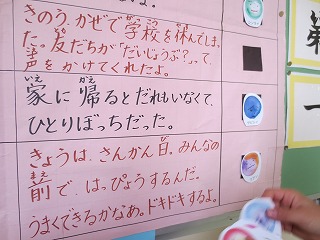 きのう、かぜで学校を休んでしまっ
た。友だちが「だいじょうぶ？」って、
声をかけてくれたよ。
家に帰るとだれもいなくて、
ひとりぼっちだった。
きょうは、さんかん日。みんなの
前で、はっぴょうするんだ。
うまくできるかなあ。ドキドキするよ。
第
一